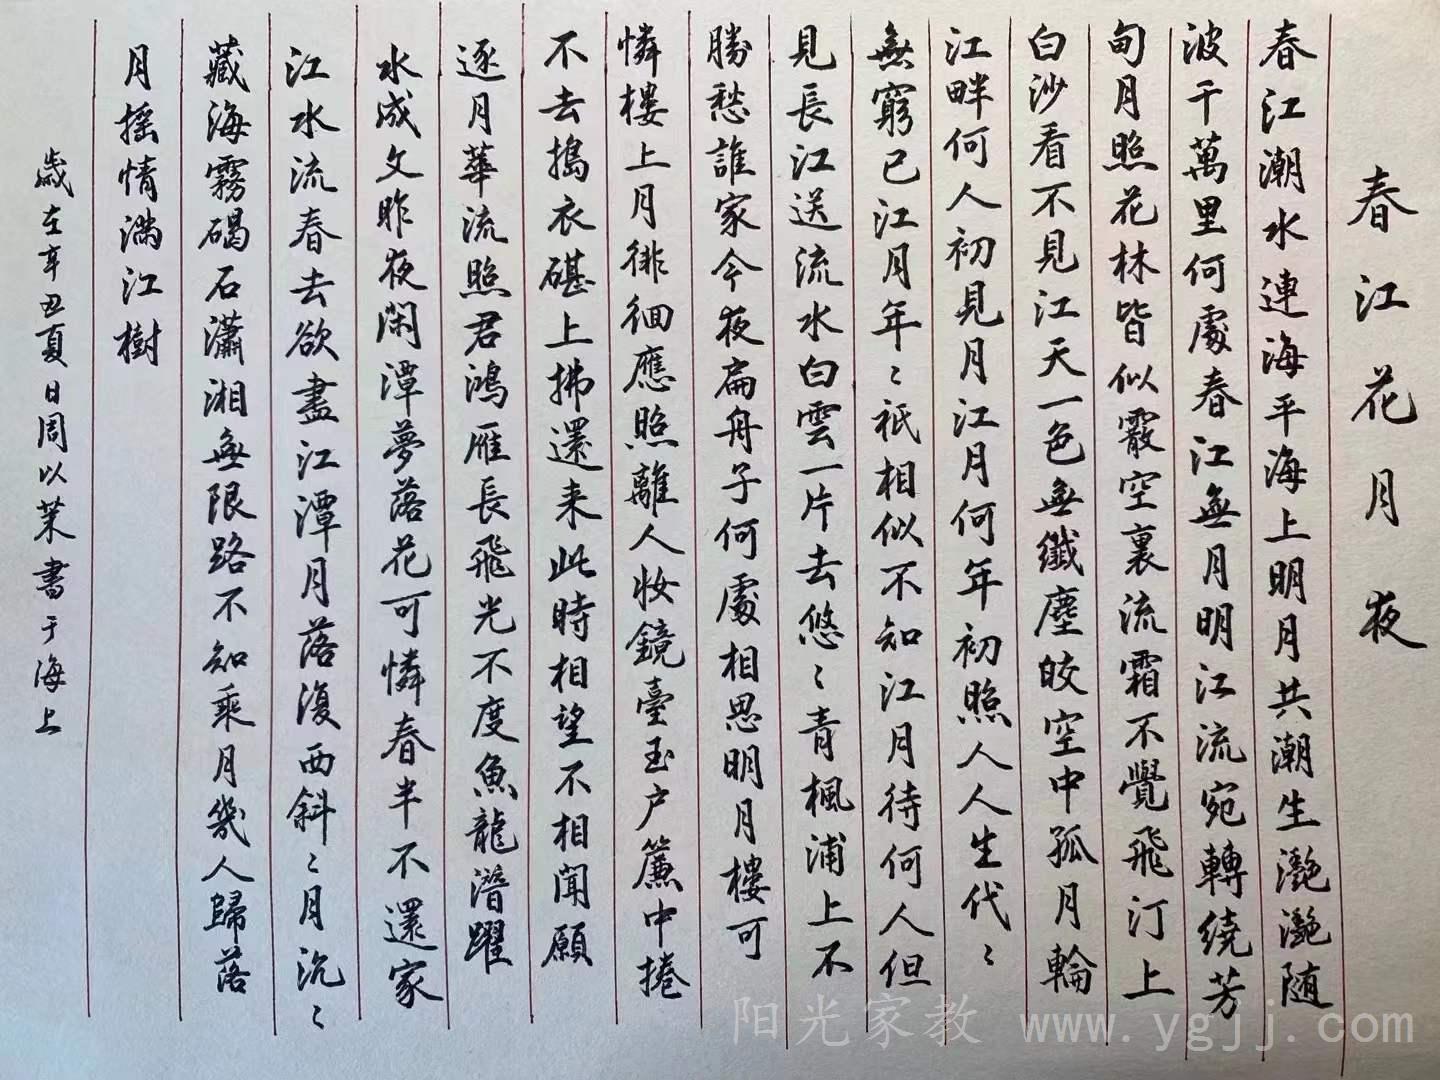 春江花月夜
春江潮水連海平海上明月共潮生灧灧随
波千萬里何處春江無月明江流宛轉繞芳
甸月照花林皆似霰空裏流霜不覺飛汀上
白沙看不見江天一色無纖塵皎空中孤月輪
江畔何人初見月江月何年初照人人生代〻
無窮已江月年〻祇相似不知江月待何人但
見長江送流水白雲一片去悠〻青楓浦上不
勝愁誰家今夜扁舟子何處相思明月樓可
憐樓上月徘徊應照離人妝鏡臺玉户簾中捲
不去搗衣碪上拂還来此時相望不相聞願
逐月華流照君鴻雁長飛光不度魚龍潛躍
水成文昨夜閑潭夢落花可憐春半不還家
江水流春去欲盡江潭月落復西斜〻月沉〻
藏海霧碣石瀟湘無限路不知乘月幾人歸落
月摇情满江樹
歲在辛丑夏日周以茉書于海上
阳光家教 www.ygjj.com